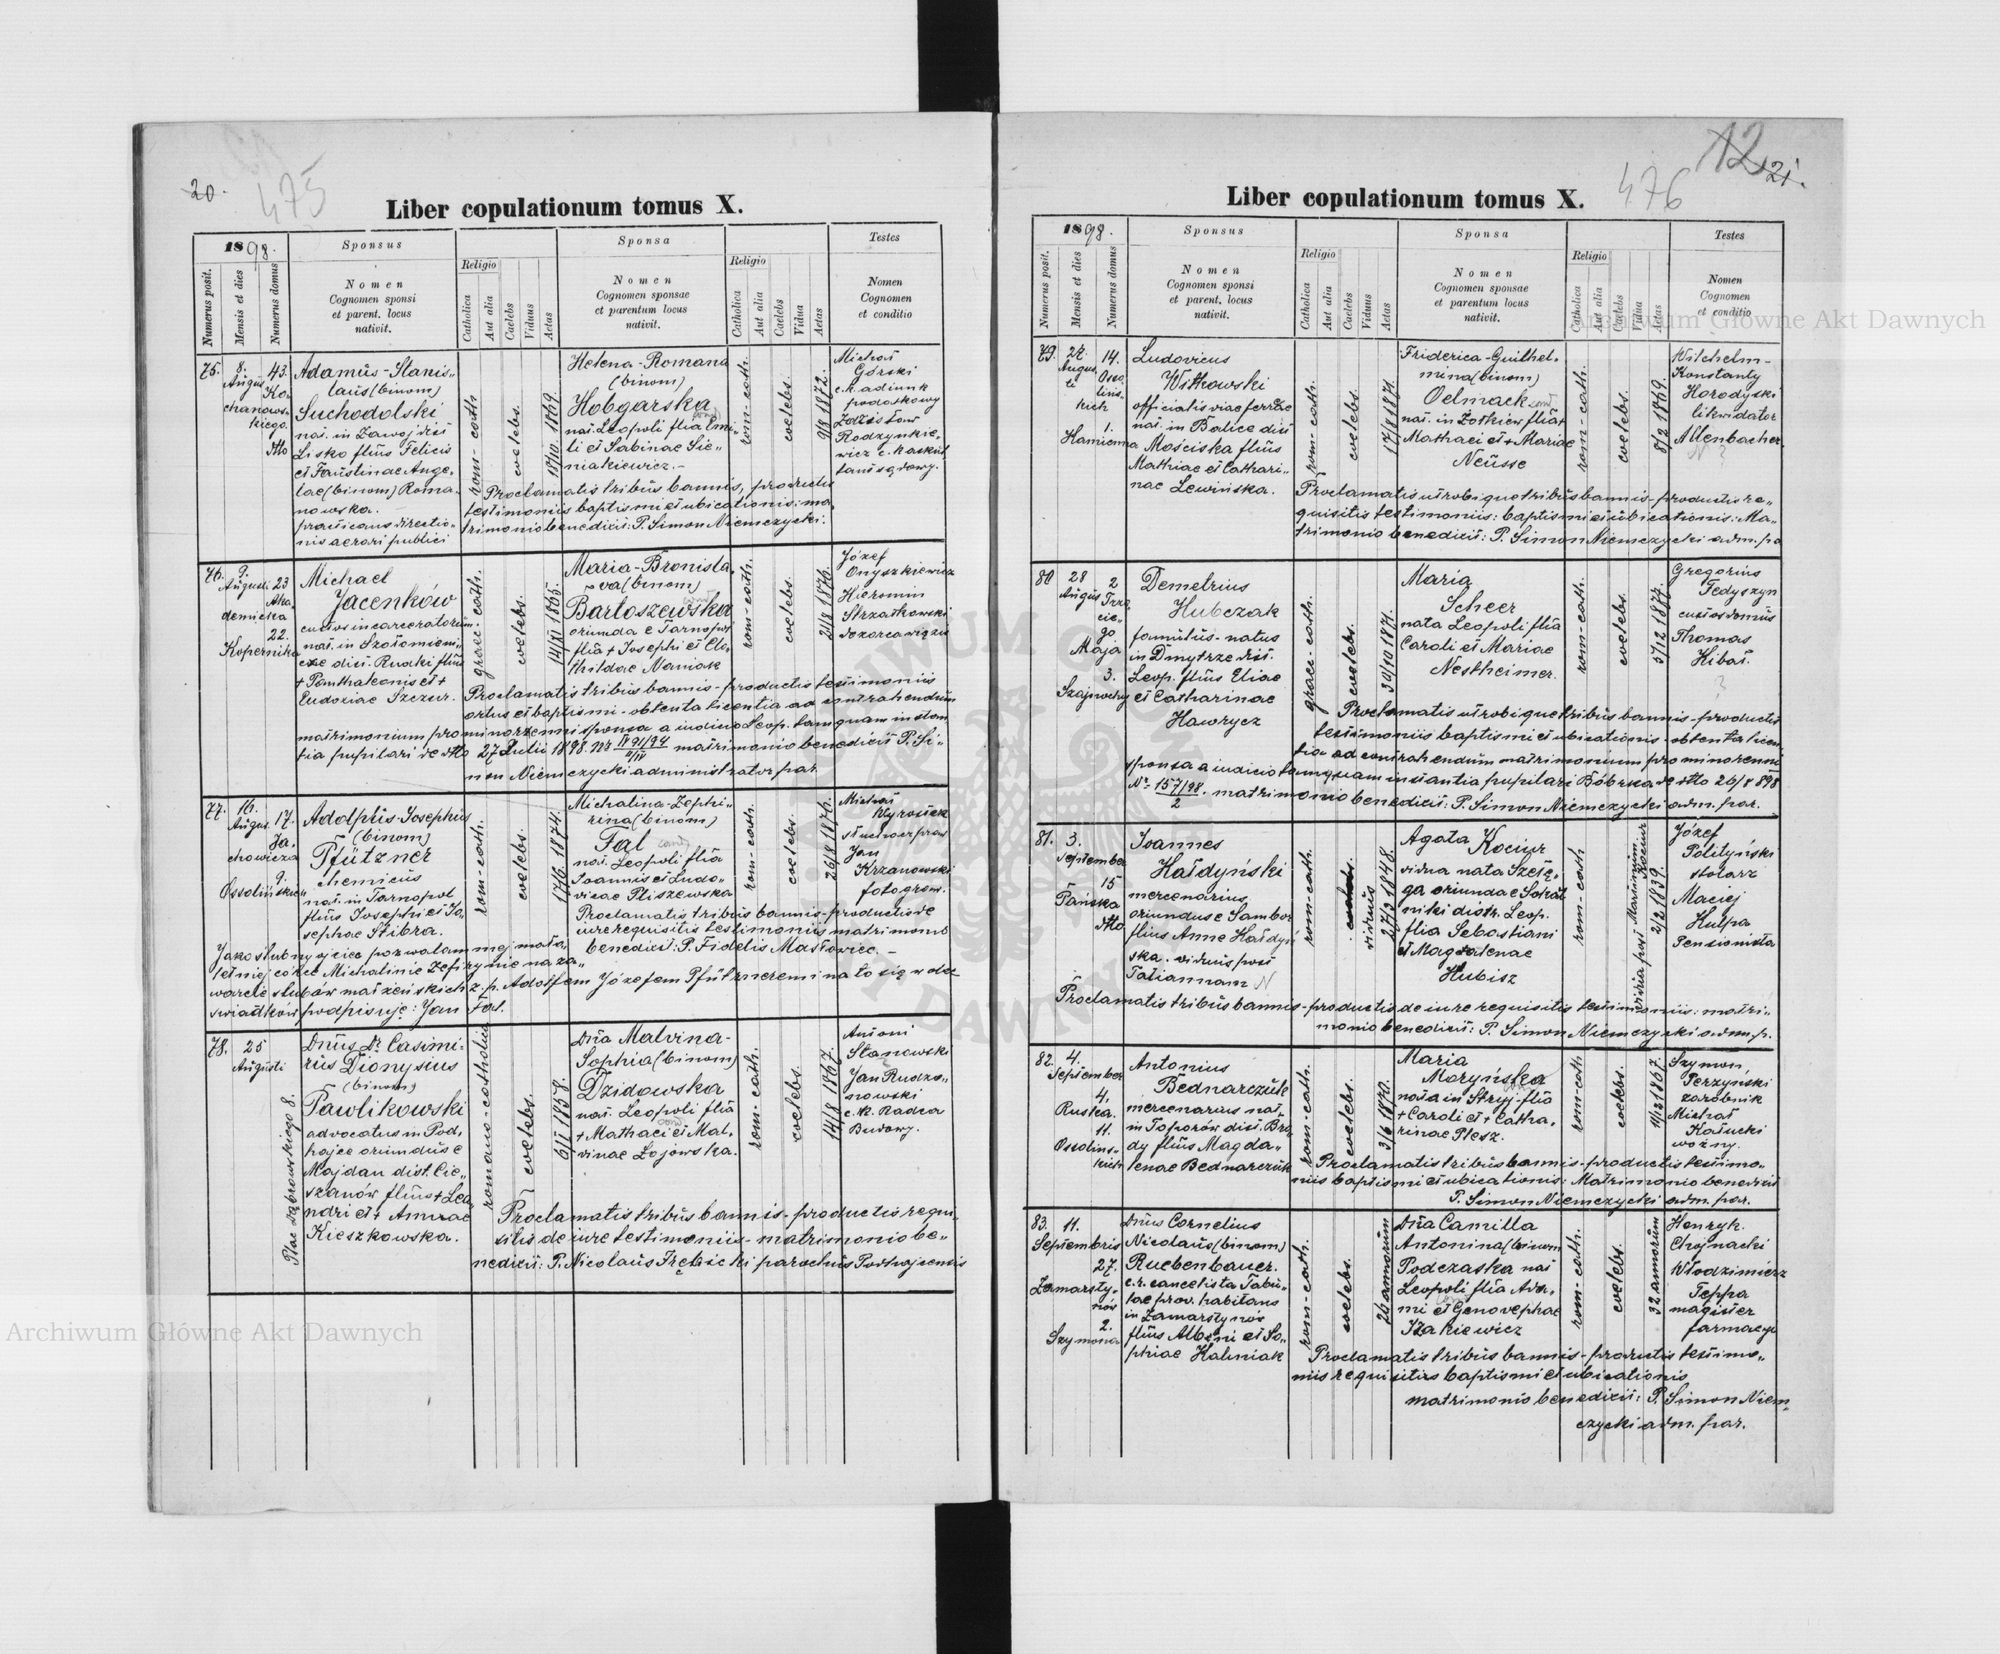 20.
475
Liber copulationum tomus X.
1898.
Sponsus
Sponsa
Testes
Numerus posit.
Mensis et dies
Numerus domus
Nomen
Cognomen sponsi
et parent. locus
nativit.
Religio
Catholica
Aut alia
Caelebs
Viduus
Aetas
Nomen
Cognomen sponsae
et parentum locus
nativit.
Religio
Catholica
Aut alia
Caelebs
Vidua
Aetas
Nomen
Cognomen
et conditio
75.
8.
Augus
43.
Ko-
chanows-
kiego.
dto
Adamus-Stanis-
laus (binom)
Suchodolski
nat. in Zawoj dist
Lisko filius Felicis
et Faustinae Ange-
lae (binom) Roma-
nowska.
practicans directio-
nis aerari publici
rom-cath
coelebs.
1869
Helena-Romana
(binom)
Hobgarska
nat. Leopoli filia Emi-
li et Sabinae Sie-
niakiewicz.-
rom-cath.
coelebs.
9/8 1872.
Michał
Górski
c.k. adiunk
podatkowy
Zdzisław
Rodzynkie-
wicz c.k. auskul
tant sądowy.
Proclamatis tribus bannis, productis
testimoniis baptismi et ubicationis: ma-
trimonio benedixit: P. Simon Niemczycki.
76.
9.
Augusti
23
Aka-
demicka
22.
Kopernika
Michael
Jacenków
custos incarceratorum.
nat. in Szołomieni-
cze dist. Rudki filius
+ Panthaleonis et +
Eudoxiae Szczur.
graec-cath.
coelebs.
14/XI 1865.
Maria-Bronisla-
va (binom)
Bartoszewska
oriunda e Tarnopol
filia + Josephi et Clo-
thildae Maniak
rom-cath.
coelebs.
1876.
Józef
Onyszkiewicz
Hieronim
Strzałkowski
dozorca więzień
Proclamatis tribus bannis-productis testimoniis
ortus et baptismi-obtenta licentia ad contrahendum
matrimonium pro minorenni sponsa a iudicio Leop. tamquam instan
tia pupilari de dto 27 Julii 1898. Nr IV 91/94 matrimonio benedixit P. Si-
mon Niemczycki administrator par.
77.
16.
Augus.
17.
Ja-
chowicza
9.
Ossolińskich
Adolphus-Josephus
(binom)
Pfützner
chemicus
nat. in Tarnopol
filius Josephi et Jo-
sephae Stibra.
rom-cath.
coelebs.
17/6 1874.
Michalina-Zephi-
rina (binom)
Fal
nat. Leopoli filia
Joannis et Ludo-
vicae Pliszewska
rom-cath.
coelebs.
26/8 1874.
Michał
Wyrostek
słuchacz praw
Jan
Krzanowski
fotogram.
Proclamatis tribus bannis-productis de
iure requisitis testimoniis matrimonio
benedixit: P. Fidelis Masłowiec.-
Jako ślubny ojciec pozwalam mej mało-
letniej córce Michalinie Zefirynie na za-
warcie ślubów małżeńskich z p. Adolfem Józefem Pfütznerem i na to się w obec
świadków podpisuję: Jan Fal.
78.
25
Augusti
Plac Dąbrowskiego 8.
Dnus Dr. Casimi-
rus Dionysius
(binom)
Pawlikowski
advocatus in Pod-
hajce oriundus e
Majdan dist. Cie-
szanów filius + Lea-
ndri et + Annae
Kieszkowska.
romano-catholicus
coelebs.
6/II 1858.
Dna Malvina-
Sophia (binom)
Dzidowska
nat. Leopoli filia
+ Mathaei et Mal-
vinae Łojowska.
rom-cath.
coelebs.
14/8 1867.
Antoni
Stanowski
Jan Rudzo-
nowski
c.k. Radca
Budowy.
Proclamatis tribus bannis-productis requi-
sitis de iure testimoniis-matrimonio be-
nedixit: P. Nicolaus Trębicki parochus Podhajcensis
12
21.
476
Liber copulationum tomus X.
1898.
Sponsus
Sponsa
Testes
Numerus posit.
Mensis et dies
Numerus domus
Nomen
Cognomen sponsi
et parent. locus
nativit.
Religio
Catholica
Aut alia
Caelebs
Viduus
Aetas
Nomen
Cognomen sponsae
et parentum locus
nativit.
Religio
Catholica
Aut alia
Caelebs
Vidua
Aetas
Nomen
Cognomen
et conditio
79.
27.
Augus
ti
14.
Osso-
lińs-
kich
1.
Kamienna
Ludovicus
Witkowski
officialis viae ferreae
nat. in Balice dist
Mościska filius
Mathiae et Cathari-
nae Lewińska.
rom-cath.
coelebs
17/8 1871.
Friderica-Guilhel-
mina (binom)
Oelmack
nat. in Żołkiew filia +
Mathaei et + Mariae
Neusse
rom-cath.
coelebs.
8/2 1869.
Wilchelm-
Konstanty
Horodyski
likwidator
Altenbacher
N ?
Proclamatis utrobique tribus bannis-productis re-
quisitis testimoniis: baptismi et ubicationis: Ma-
trimonio benedixit: P. Simon Niemczycki adm. pa
80
28
Augus
2
Trze-
cie-
go
Maja
3.
Szajnochy
Demetrius
Hubczak
famulus-natus
in Dmytrze dist.
Leop. filius Eliae
et Catharinae
Hawrycz
graec-cath.
coelebs.
30/10 1871.
Maria
Scheer
nata Leopoli filia
Caroli et Mariae
Nestheimer.
rom-cath.
coelebs.
5/12 1877.
Gregorius
Fedyszyn
custos domus
Thomas
Kibat.
?
Proclamatis utrobique tribus bannis-productis
testimoniis baptismi et ubicationis-obtenta licen-
tia ad contrahendum matrimonium pro minorenni
sponsa a iudicio tamquam instantia pupilari Bóbrka de dto 26/8 898
Nr 157/98/2. matrimonio benedixit: P. Simon Niemczycki adm. par.
81.
3.
September
15
Pańska
dto
Joannes
Hałdyński
mercenarius
oriundus e Sambor
filius Annae Hałdyń
ska. viduus post
Tatiannam N
rom-cath.
viduus
27/2 1848.
Agata Kociur
vidua nata Szelą-
ga oriunda e Sokol
niki distr. Leop.
filia Sebastiani
et Magdalenae
Hubisz
rom-cath
vidua post Martinum Kociur
2/2 1839.
Józef
Polityński
stolarz
Maciej
Hulpa
Pensionista
Proclamatis tribus bannis-productis de iure requisitis testimoniis: matri-
monio benedixit: P. Simon Niemczycki adm. p.
82.
4.
September
4.
Ruska.
11.
Ossolińs-
kich
Antonius
Bednarczuk
mercenarius nat.
in Toporów dist. Bro-
dy filius Magda-
lenae Bednarczuk
rom-cath.
coelebs.
3/6 1870.
Maria
Moryńska
nata in Stryj-filia
+ Caroli et + Catha-
rinae Plesz.
rom-cath
coelebs.
1867.
Szymon
Perzyński
zarobnik
Michał
Kałucki
woźny.
Proclamatis tribus bannis-productis testimo-
niis baptismi et ubicationis: Matrimonio benedixit
P. Simon Niemczycki adm. par.
83.
11.
Septembris
27.
Zamarsty-
nów
2.
Szymona
Dnus Cornelius
Nicolaus (binom)
Ruebenbauer.
c.r. cancelista Tabu-
lae prov. habitans
in Zamarstynow
filius Albini et So-
phiae Kaliniak
rom-cath.
coelebs.
26 annorum
Dna Camilla
Antonina (binom
Podczaska nat
Leopoli filia Ada-
mi et Genovephae
Izakiewicz
rom-cath.
coelebs.
32 annorum
Henryk
Chojnacki
Włodzimierz
Teppa
magister
farmacyi
Proclamatis tribus bannis-productis testimo-
niis requisitis baptismi et ubicationis
matrimonio benedixit: P. Simon Niem-
czycki adm. par.
Archiwum Główne Akt Dawnych
Archiwum Główne Akt Dawnych